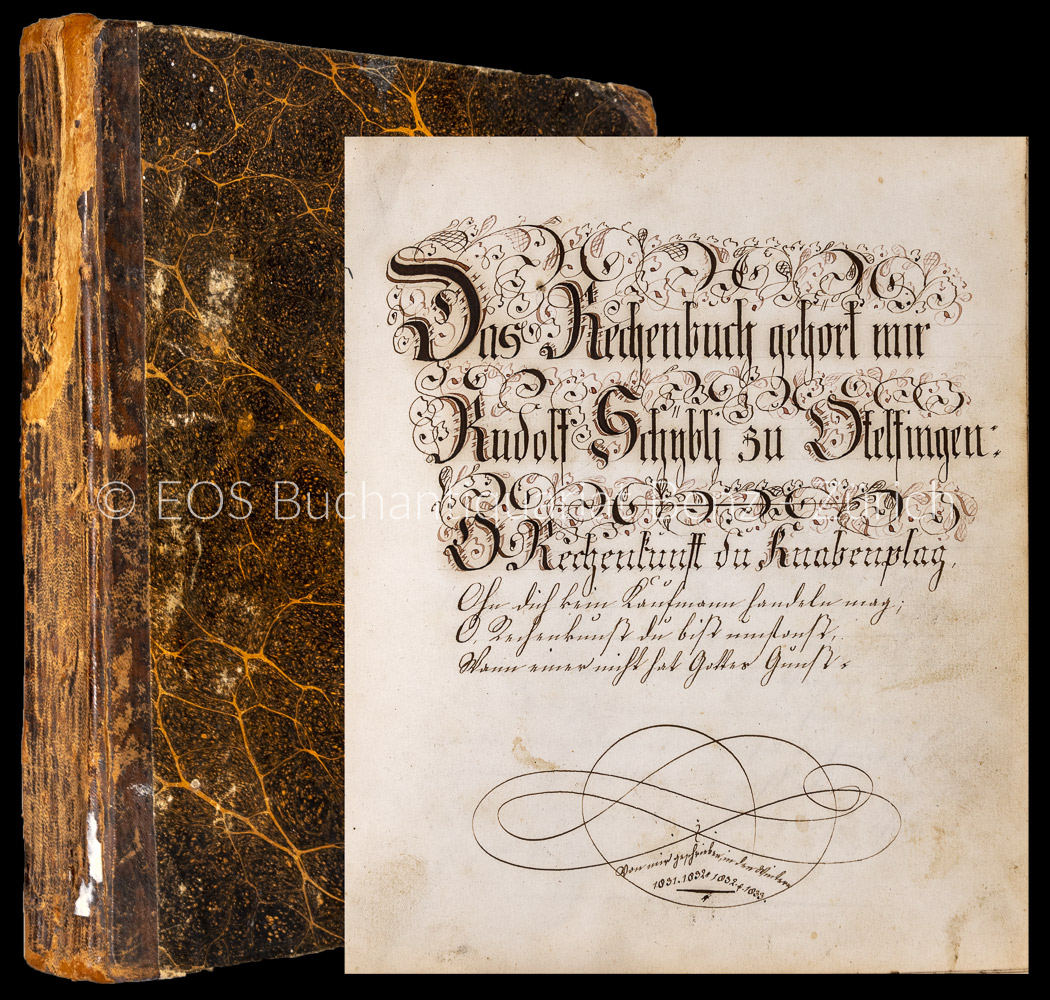 Das Rechenbuch gehört mir
Rudolf Schybli zu Otelfingen:
© EOS Buchantiquariat Benz Zürich
O Rechenkunst du Knabenplag,
Ohn dich kein Kaufmann handeln mag;
O, Rechenkunst du bist umsonst,
Wann einer nicht hat Gottes Gunst.
Von mir geschrieben, in den Wintern
1831.1832 & 1832 & 1833.